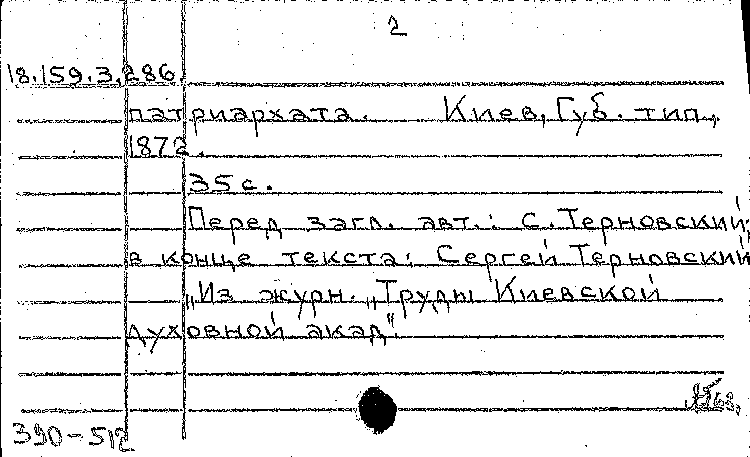 2
18.159.3.286.
патриархата. Киев, Губ. тип.,
1872.
35 с.
Перед загл. авт.: С. Терновский;
в конце текста: Сергей Терновский
„Из журн. „Труды Киевской
духовной акад".
390-512